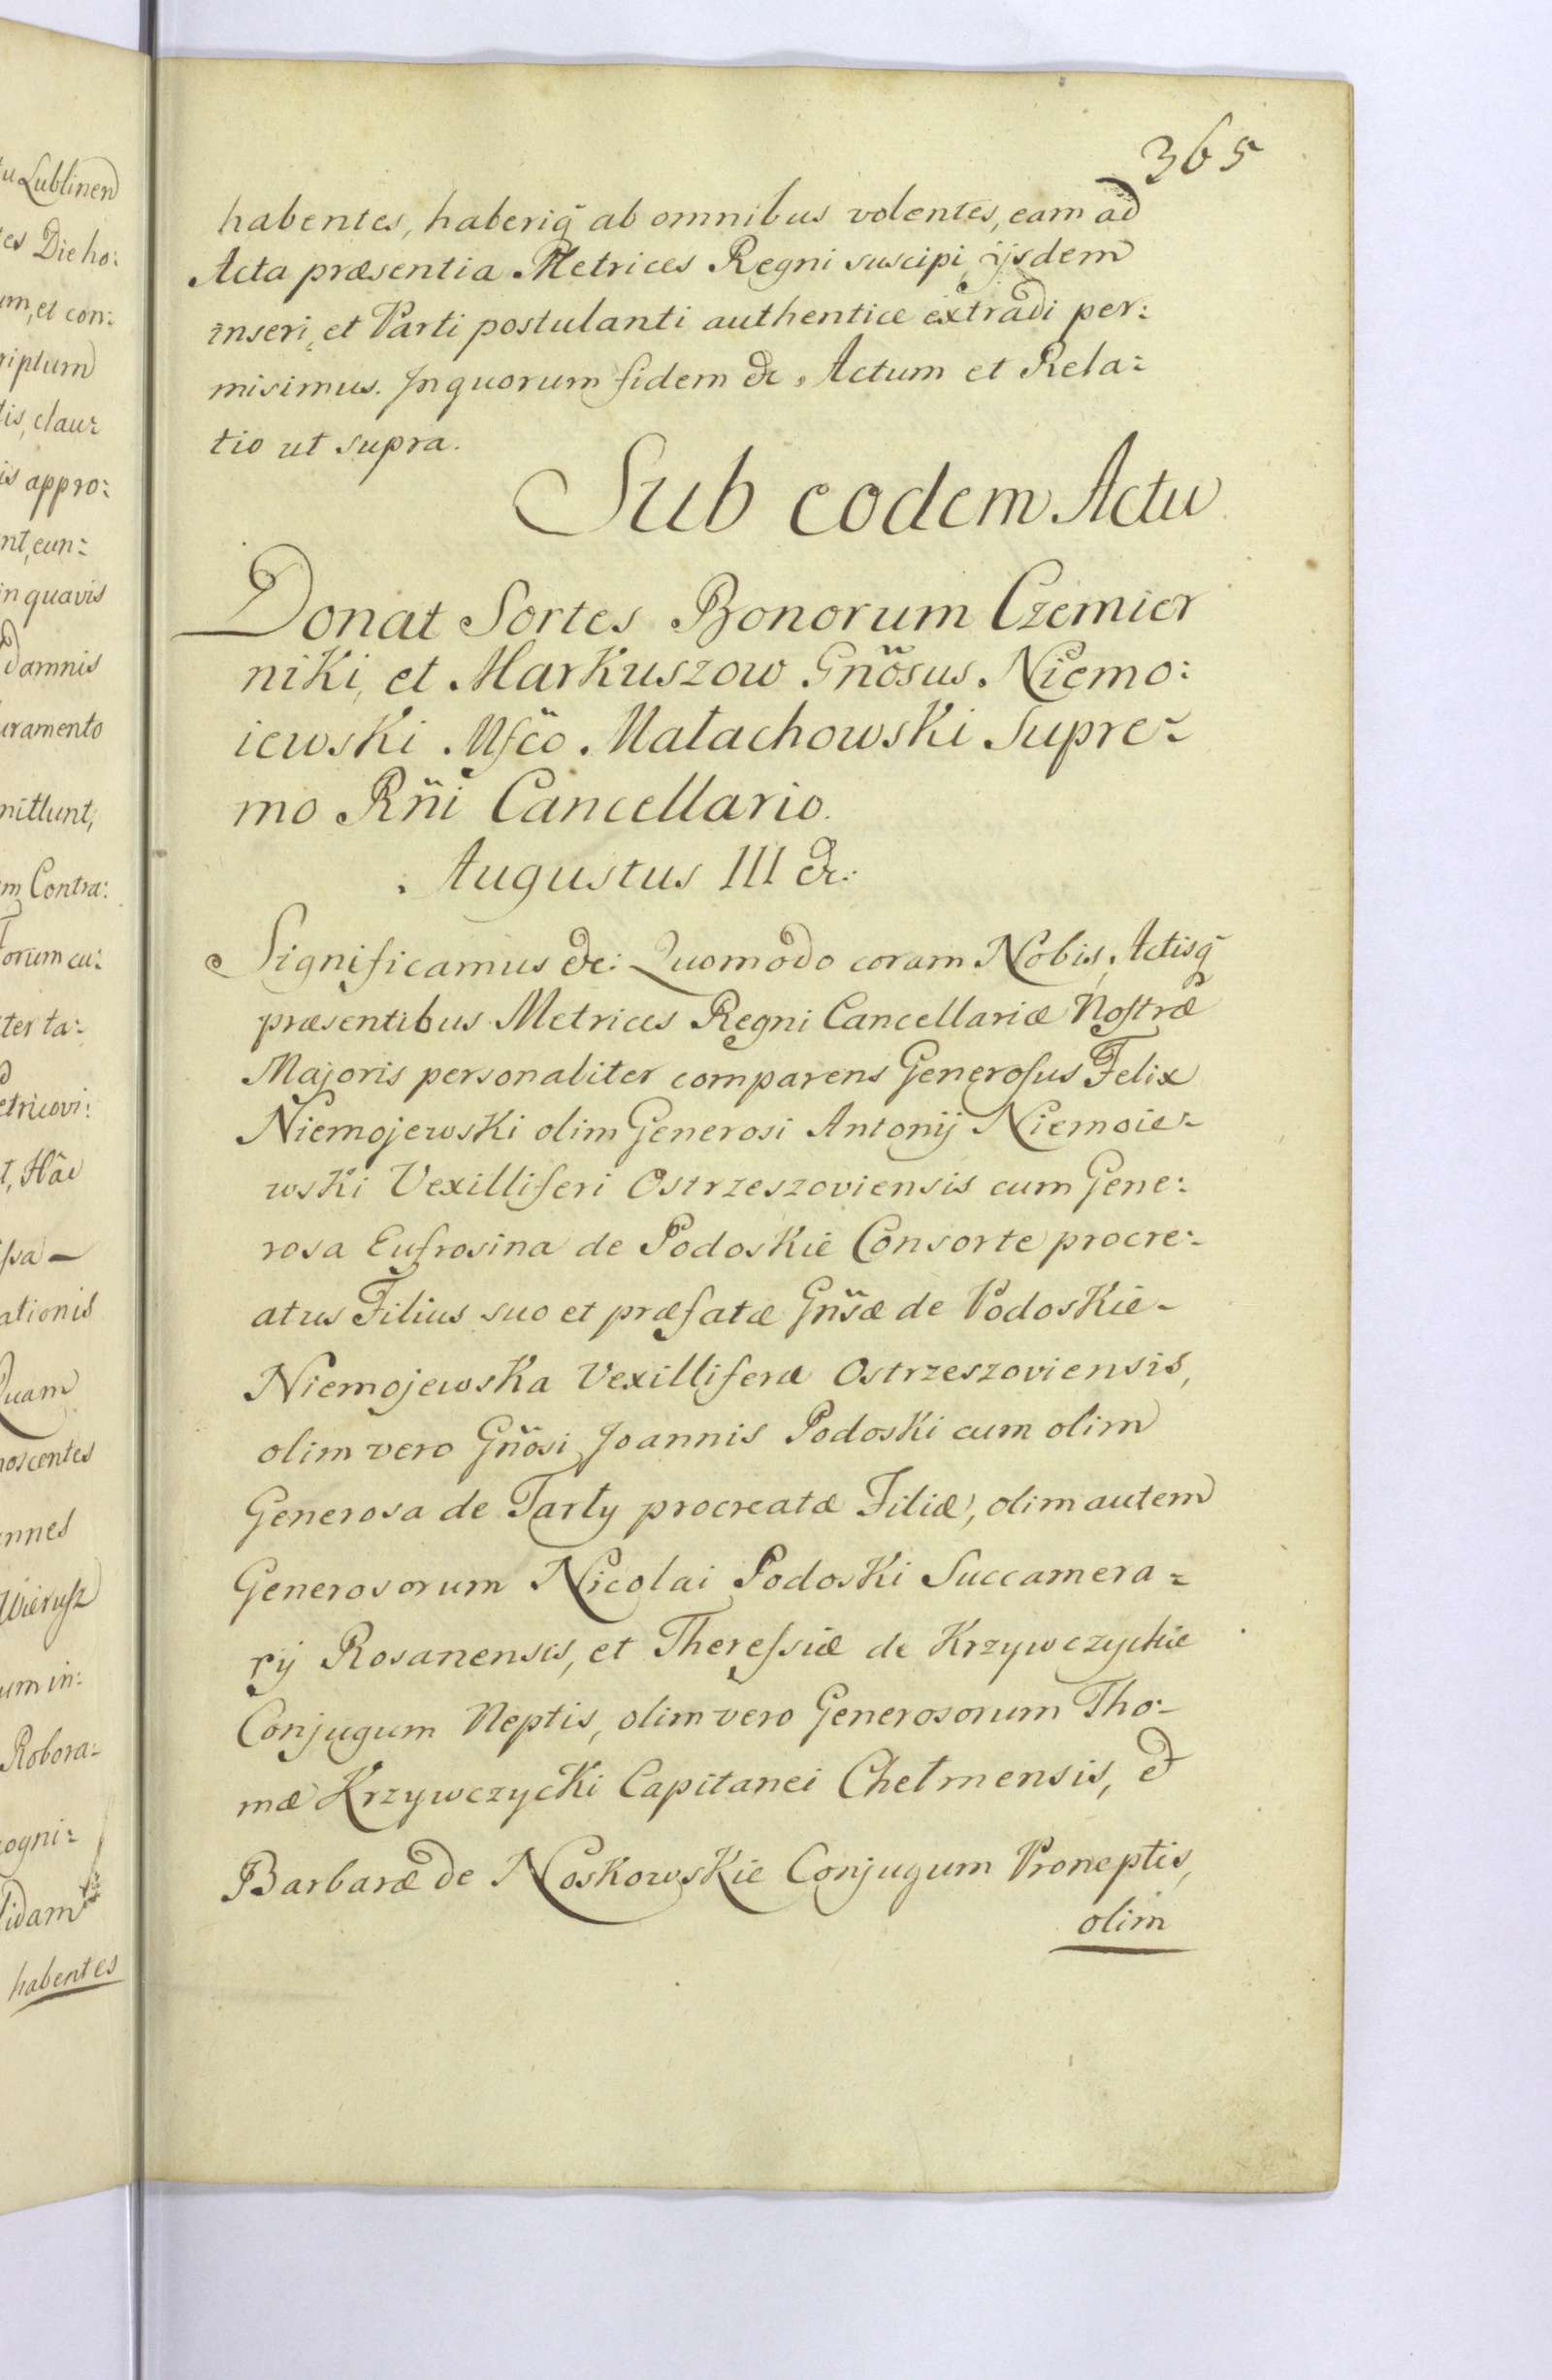 365
habentes, haberiq̃ ab omnibus volentes, eam ad
Acta præsentia Metrices Regni suscipi, ijsdem
inseri, et Parti postulanti authentice extradi per:
misimus. In quorum fidem &c. Actum et Rela:
tio ut supra.
Sub eodem Actu
Donat Sortes Bonorum Czemier
niki, et Markuszow Gñosus Niemo:
iewski Mfco Małachowski Supre:
mo Rñi Cancellario.
Augustus III &c:
Significamus &c: Quomodo coram Nobis, Actisq̃
præsentibus Metrices Regni Cancellariæ Nostræ
Majoris personaliter comparens Generosus Felix
Niemojewski olim Generosi Antonij Niemoie:
wski Vexilliferi Ostrzeszoviensis cum Gene:
rosa Eufrosina de Podoskie Consorte procre:
atus Filius suo et præfatæ Gñsæ de Podoskie
Niemojewska Vexilliferæ Ostrzeszoviensis,
olim vero Gñosi Joannis Podoski cum olim
Generosa de Tarły procreatæ Filiæ, olim autem
Generosorum Nicolai Podoski Succamera:
rij Rosanensis, et Theressiæ de Krzywczyckie
Conjugum Neptis, olim vero Generosorum Tho:
mæ Krzywczycki Capitanei Chełmensis, et
Barbaræ de Noskowskie Conjugum Proneptis,
olim
tu Lublinen
tes Die ho:
um, et con:
riptum
tis, clau:
is appro:
nt, eun:
in quavis
damnis
uramento
mittunt,
m Contra:
Forum cu:
ter ta:
etricovi:
t, Hâc
ssa
ationis
Quam
noscentes
annes
Wierusz
um in:
Robora:
cogni:
lidam
habentes